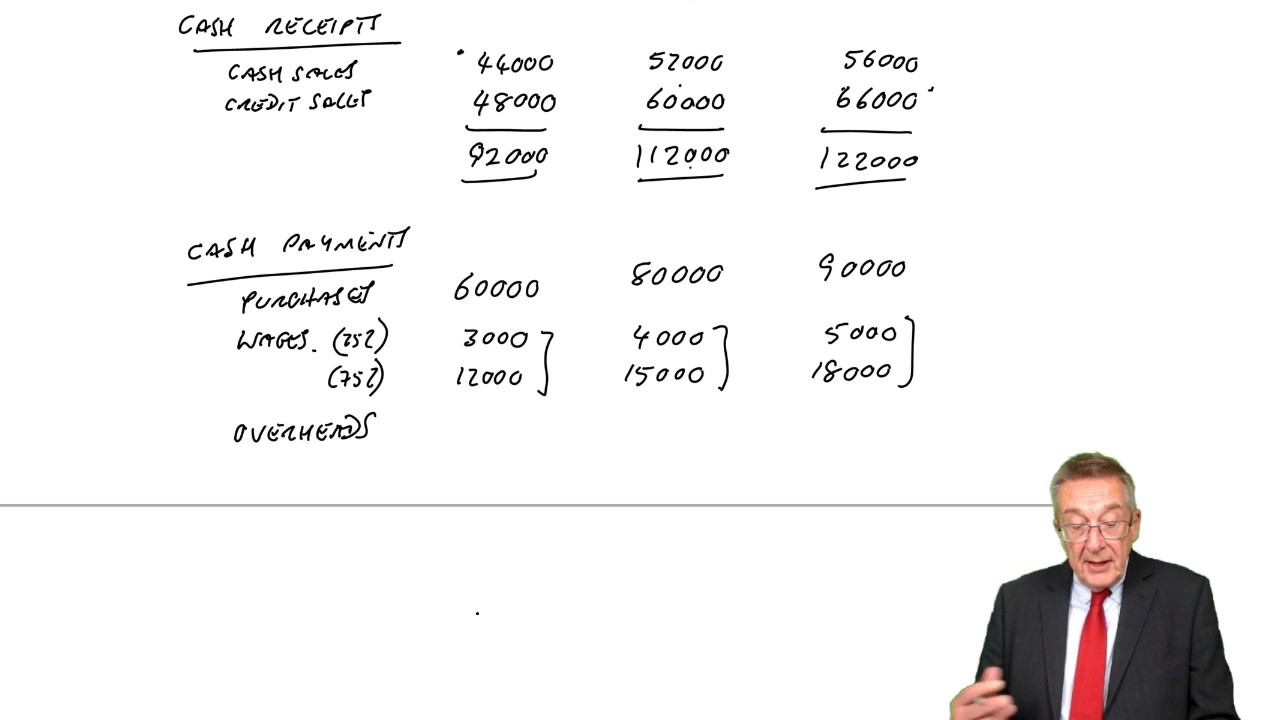 CASH RECEIPTS
CASH SALES 44000 52000 56000
CREDIT SALES 48000 60000 66000
92000 112000 122000
CASH PAYMENTS
PURCHASES 60000 80000 90000
WAGES. (25%) 3000 4000 5000
(75%) 12000 15000 18000
OVERHEADS